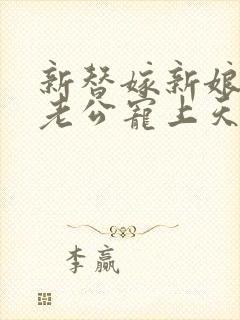 新替嫁新娘
老公宠上天
李赢